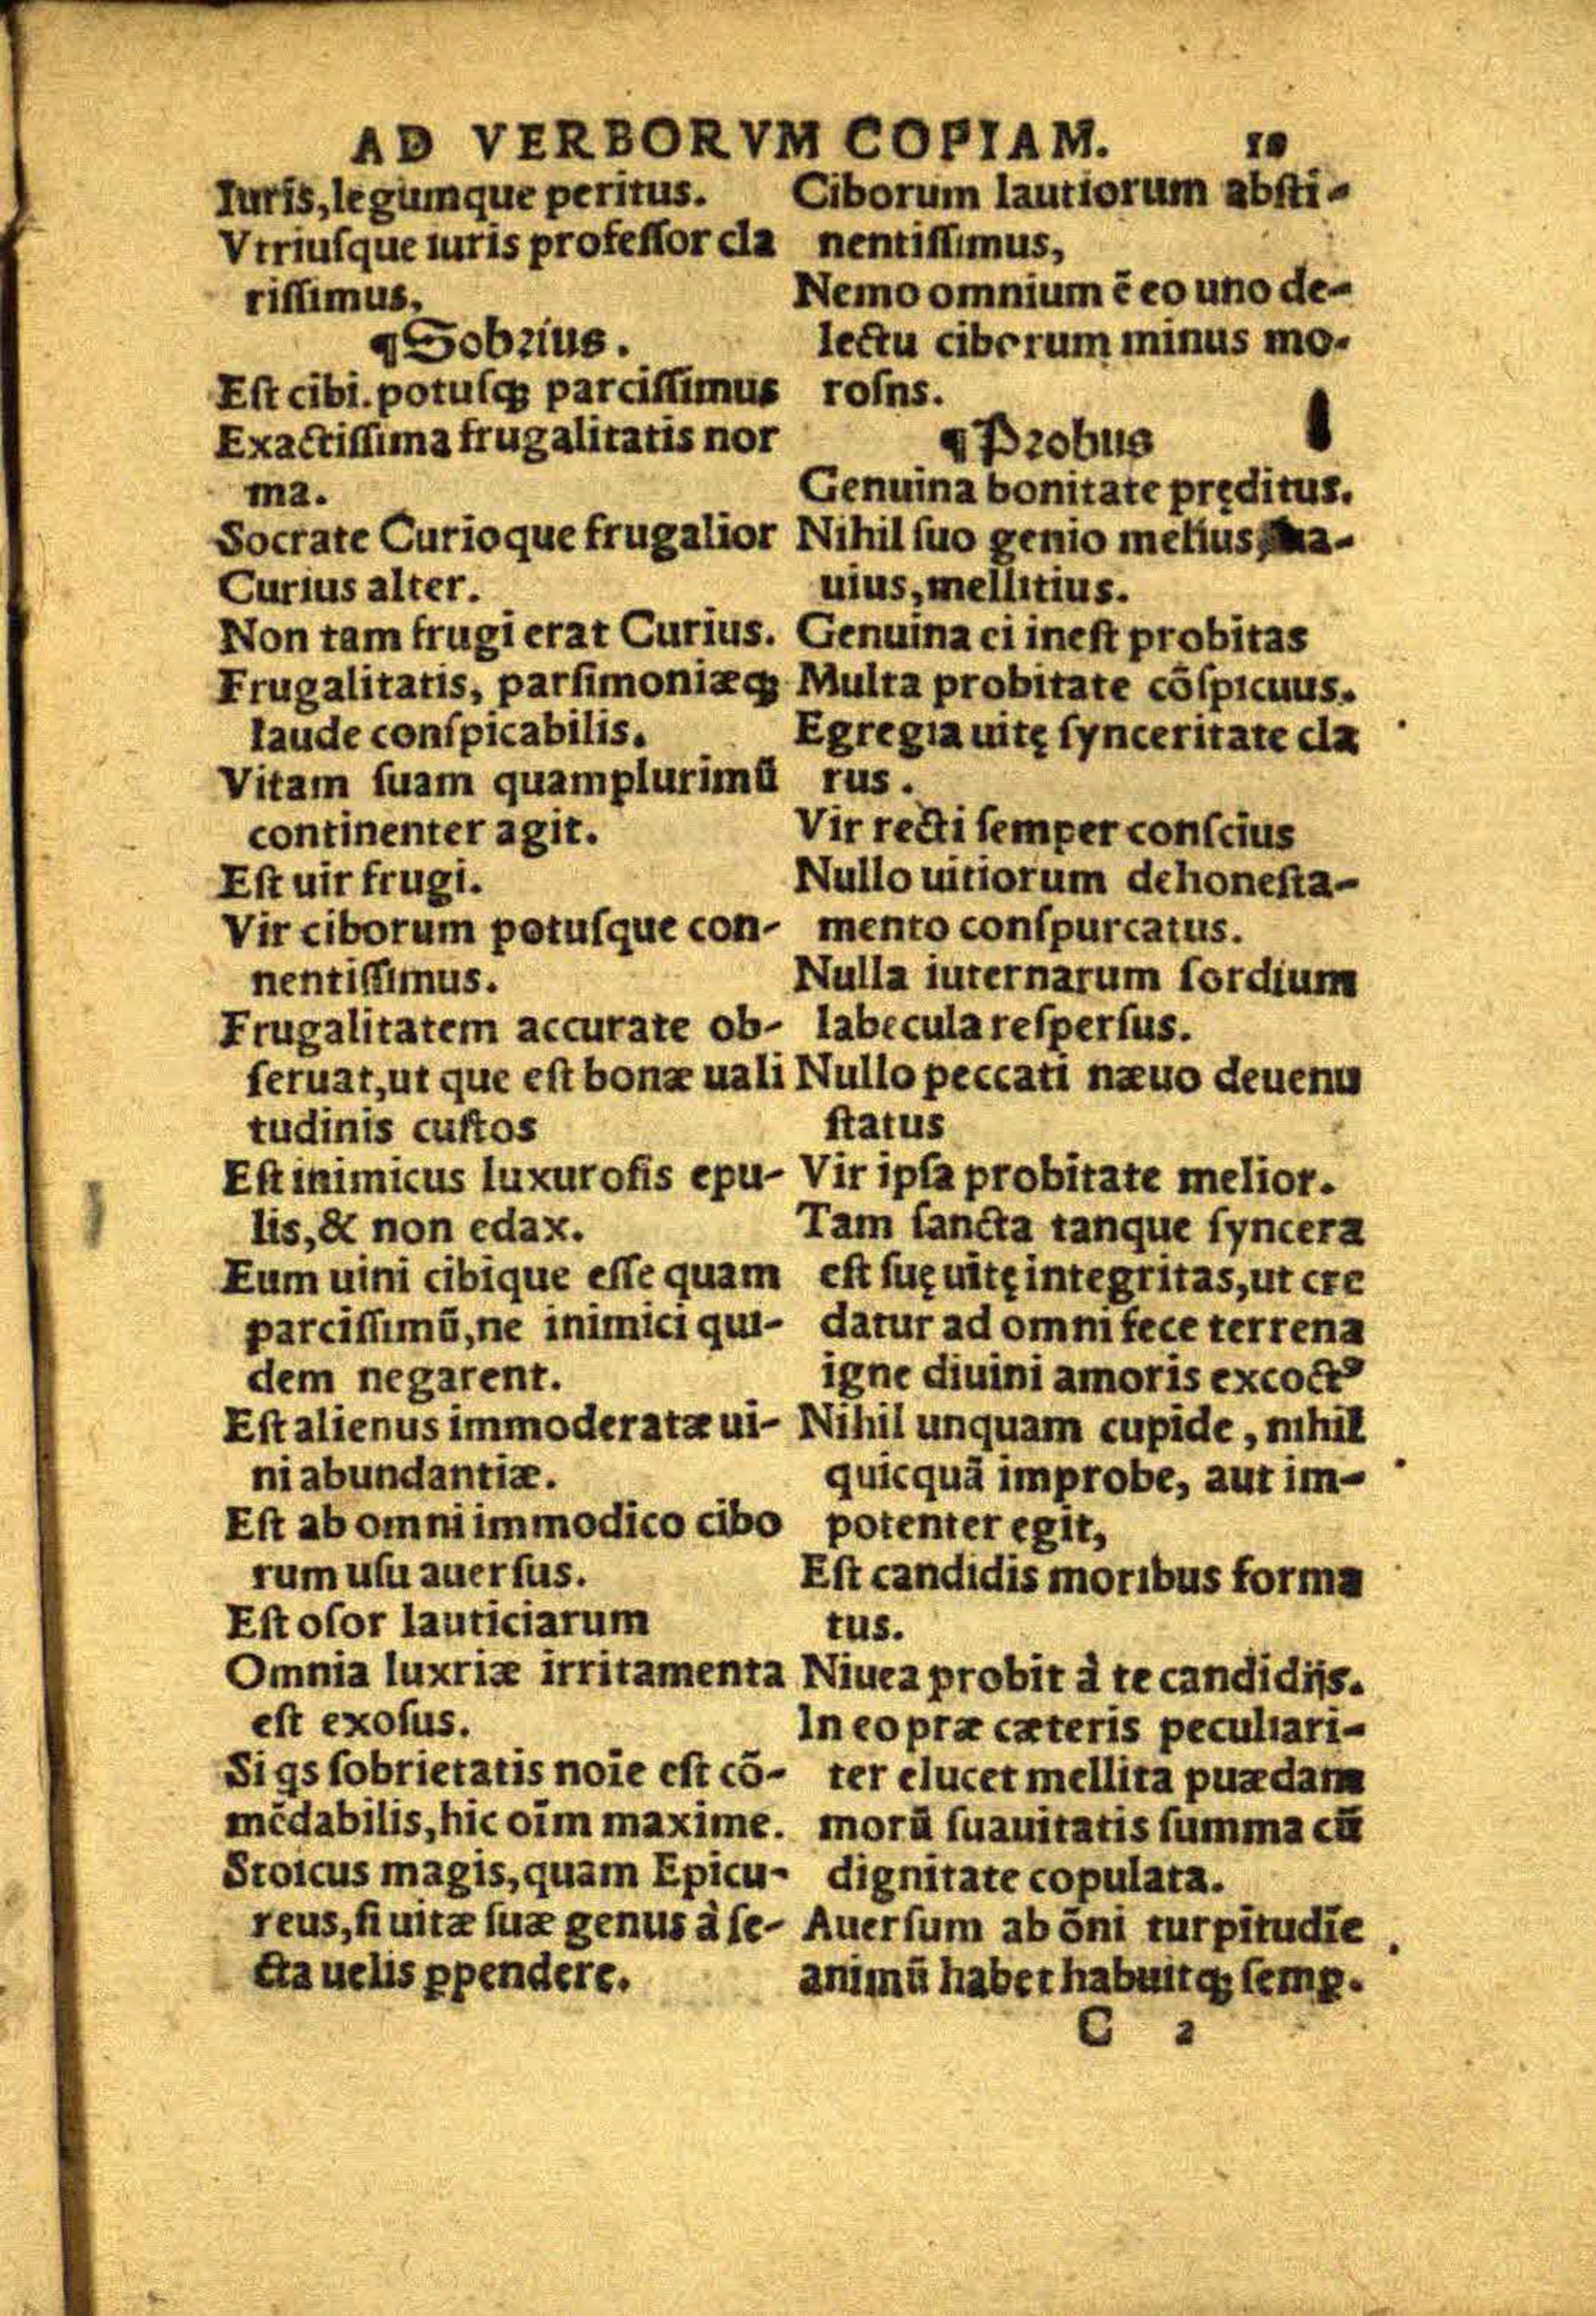 AD VERBORVM COPIAM. 10
Iuris, legumque peritus.
Vtriuſque iuris profeſſor cla
riſſimus.
¶Sobrius.
Eſt cibi. potuſqꝫ parciſſimus
Exactiſſima frugalitatis nor
ma.
Socrate Curioque frugalior
Curius alter.
Non tam frugi erat Curius.
Frugalitatis, parſimoniæqꝫ
laude conſpicabilis.
Vitam ſuam quamplurimũ
continenter agit.
Eſt uir frugi.
Vir ciborum potuſque con-
nentiſſimus.
Frugalitatem accurate ob-
ſeruat, ut que eſt bonæ uali
tudinis cuſtos
Eſt inimicus luxuroſis epu-
lis, & non edax.
Eum uini cibique eſſe quam
parciſſimũ, ne inimici qui-
dem negarent.
Eſt alienus immoderatæ ui-
ni abundantiæ.
Eſt ab omni immodico cibo
rum uſu auerſus.
Eſt oſor lauticiarum
Omnia luxriæ irritamenta
eſt exoſus.
Si qs ſobrietatis noīe eſt cõ-
mẽdabilis, hic oīm maxime.
Stoicus magis, quam Epicu-
reus, ſi uitæ ſuæ genus à ſe-
cta uelis ꝓpendere.
Ciborum lautiorum abſti-
nentiſſimus,
Nemo omnium ẽ eo uno de-
lectu ciborum minus mo-
roſns.
¶Probus
Genuina bonitate pręditus.
Nihil ſuo genio melius, ſua-
uius, mellitius.
Genuina ei ineſt probitas
Multa probitate cõſpicuus.
Egregia uitę ſynceritate cla
rus.
Vir recti ſemper conſcius
Nullo uitiorum dehoneſta-
mento conſpurcatus.
Nulla iuternarum ſordium
labecula reſperſus.
Nullo peccati næuo deuenu
ſtatus
Vir ipſa probitate melior.
Tam ſancta tanque ſyncera
eſt ſuę uitę integritas, ut cre
datur ad omni fece terrena
igne diuini amoris excoctꝰ
Nihil unquam cupide, nihil
quicquã improbe, aut im-
potenter egit,
Eſt candidis moribus forma
tus.
Niuea probit à te candidijs.
In eo præ cæteris peculiari-
ter elucet mellita puædam
morũ ſuauitatis ſumma cũ
dignitate copulata.
Auerſum ab õni turpitudīe
animũ habet habuitqꝫ ſemꝑ.
C 2